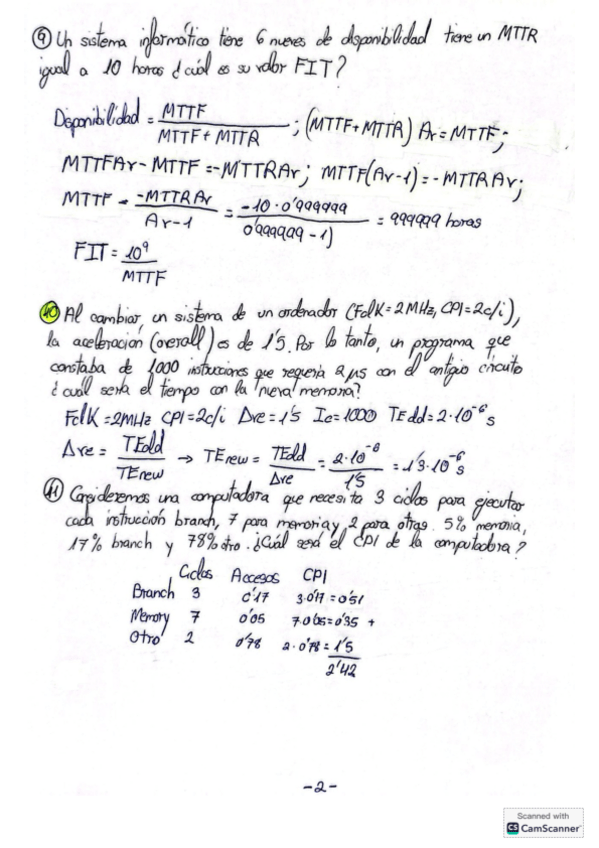 9 Un sistema informático tiene 6 nueves de disponibilidad tiene un MTTR
igual a 10 horas ¿cuál es su valor FIT?
Disponibilidad = MTTF / (MTTF + MTTR) ; (MTTF+MTTR) Ar = MTTF;
MTTFAr - MTTF = -MTTRAr; MTTF(Ar-1) = -MTTRAr;
MTTF = -MTTRAr / (Ar-1) = -10·0'999999 / 0'999999-1) = 999999 horas
FIT = 10⁹ / MTTF
10 Al cambiar un sistema de un ordenador (FclK = 2MHz, CPI = 2c/i),
la aceleración (overall) es de 1'5. Por lo tanto, un programa que
constaba de 1000 instrucciones que requería 2μs con el antigio circuito
¿cuál sería el tiempo con la nueva memoria?
FclK = 2MHz CPI = 2c/i Δre = 1'5 Ic = 1000 TEdd = 2·10⁻⁶ s
Δre = TEold / TEnew → TEnew = TEdd / Δre = 2·10⁻⁶ / 1'5 = 1'3·10⁻⁶ s
11 Consideremos una computadora que necesita 3 ciclos para ejecutar
cada instrucción branch, 7 para memoria y 2 para otras. 5% memoria,
17% branch y 78% otro. ¿Cuál será el CPI de la computadora?
Ciclos Accesos CPI
Branch 3 0'17 3·0'17 = 0'51
Memory 7 0'05 7·0'05 = 0'35 +
Otro 2 0'78 2·0'78 = 1'5
2'42
-2-
Scanned with
CS CamScanner